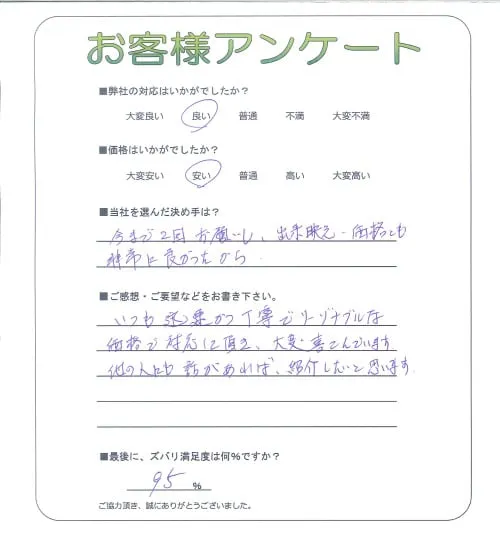 お客様アンケート
■弊社の対応はいかがでしたか？
大変良い 良い 普通 不満 大変不満
■価格はいかがでしたか？
大変安い 安い 普通 高い 大変高い
■当社を選んだ決め手は？
今まで2回お願いし、出来映え・価格とも
非常に良かったから
■ご感想・ご要望などをお書き下さい。
いつも かつ丁寧でリーズナブルな
価格で対応して頂き、大変喜こんでいます
他の人にも話があれば、紹介したいと思います
■最後に、ズバリ満足度は何%ですか？
95 %
ご協力頂き、誠にありがとうございました。